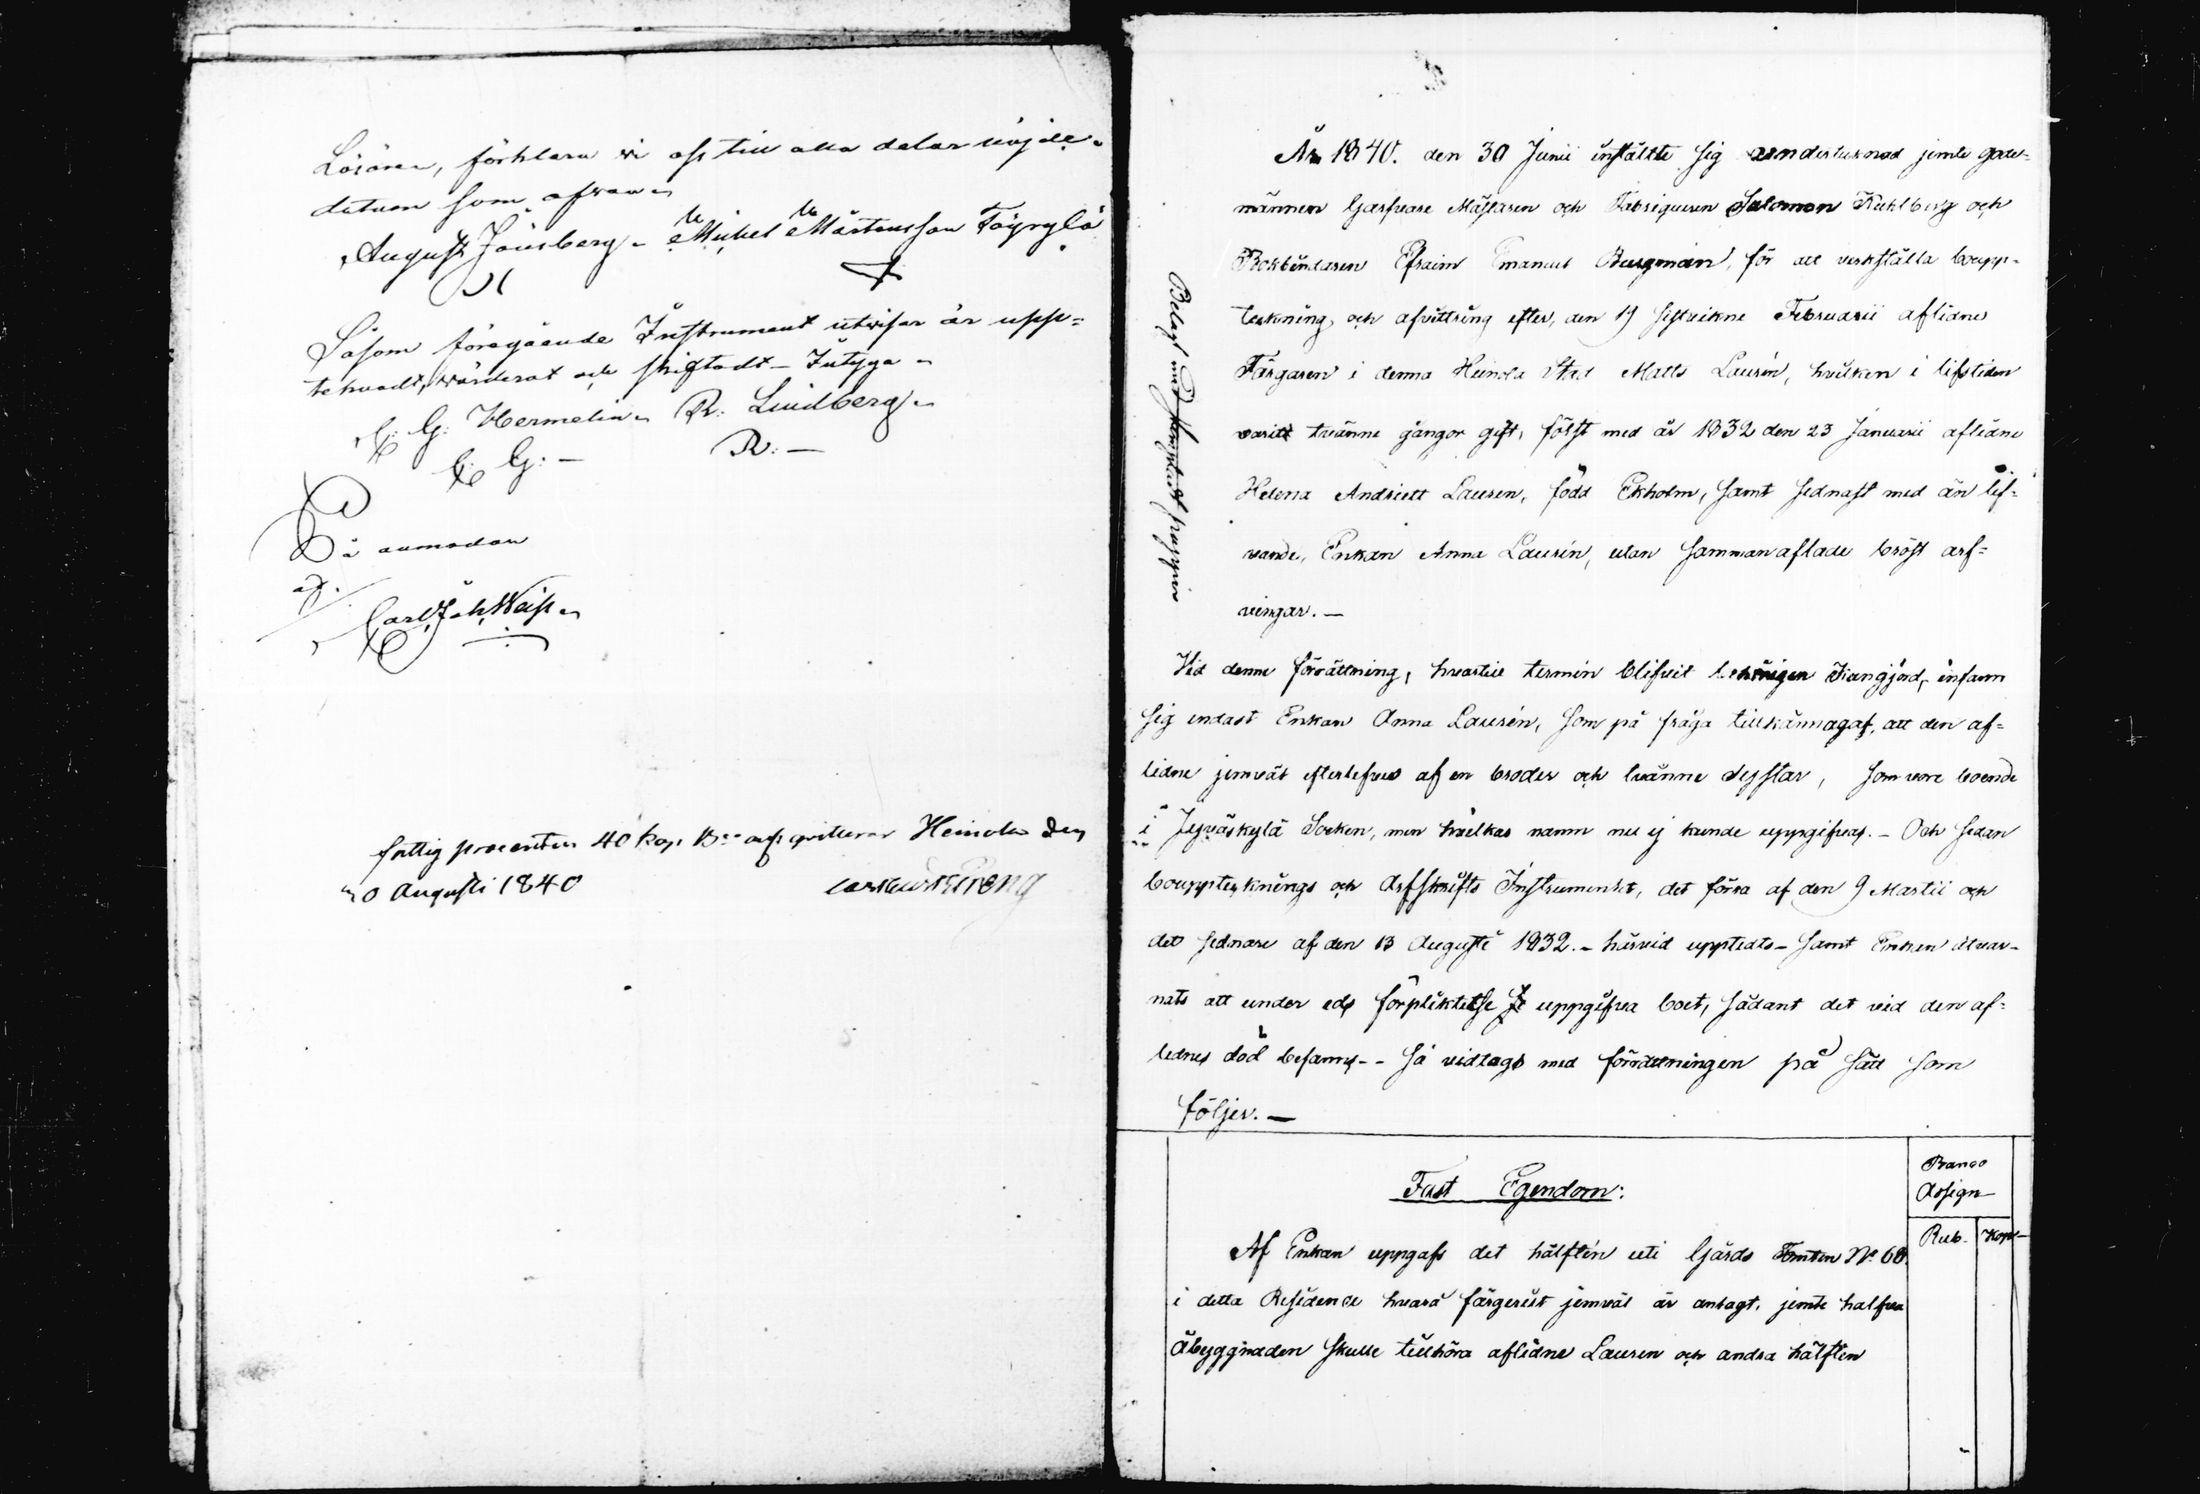 Lösören, förklara vi oss till alla delar nöjde.
datum som ofvan
August Jäusberg - Michel Mårtensson Töyrylä
Såsom föregående Instrument utvisar är upp=
teknadt, värderat och skiftadt - Intyga
C: G: Hermelin R: Lindberg
C: G: - R: -
På anmodan
af
Carl Joh Weiss
fattig procenten 40 kop B:co ass qvitterar Heinola den
20 Augusti 1840
År 1840. den 30 Junii instälte sig undertecknad jemte gode-
männen Garfvare Mästaren och Fabriqueuren Salomon Kuhlberg och
Bokbindaren Efraim Emanuel Bergman, för att verkställa boupp-
teckning och afvittring efter, den 19 sistvikne Februarii aflidne
Färgaren i denna Heinola Stad Matts Laurén, hvilken i lifstiden
varit tvänne gångor gift, först med år 1832 den 23 Januarii aflidne
Helena Andriett Lauren, född Ekholm, samt sednast med än lef=
vande, Enkan Anna Laurén, utan sammanaflade bröst arf=
vingar. -
Vid denna förrättning, hvartill termin blifvit behörigen kungjord, infann
sig endast Enkan Anna Laurén, som på fråga tillkännagaf, att den af=
lidne jemväl efterlefves af en broder och tvänne systrar, som vore boende
i Jyväskylä Socken, men hvilkas namn nu ej kunde uppgifvas. - Och sedan
bouppteknings och Arfskifts Instrumentet, det förra af den 9 Martii och
det sednare af den 13 Augusti 1832. - härvid uppteds - samt Enkan åtvar-
nats att under eds förpliktelse uppgifva boet, sådant det vid den af=
lednes död befanns - - så vidtogs med förrättningen på sätt som
följer. -
Belagt med Charta papper
Fast Egendom:
Banco
Assign
Rub. Kop
Af Enkan uppgafs det hälften uti Gårds Tomten N:o 60.
i detta Residence hvarå färgerist jemväl är anlagt, jemte halfva
Åbyggnaden skulle tillhöra aflidne Lauren och andra hälften